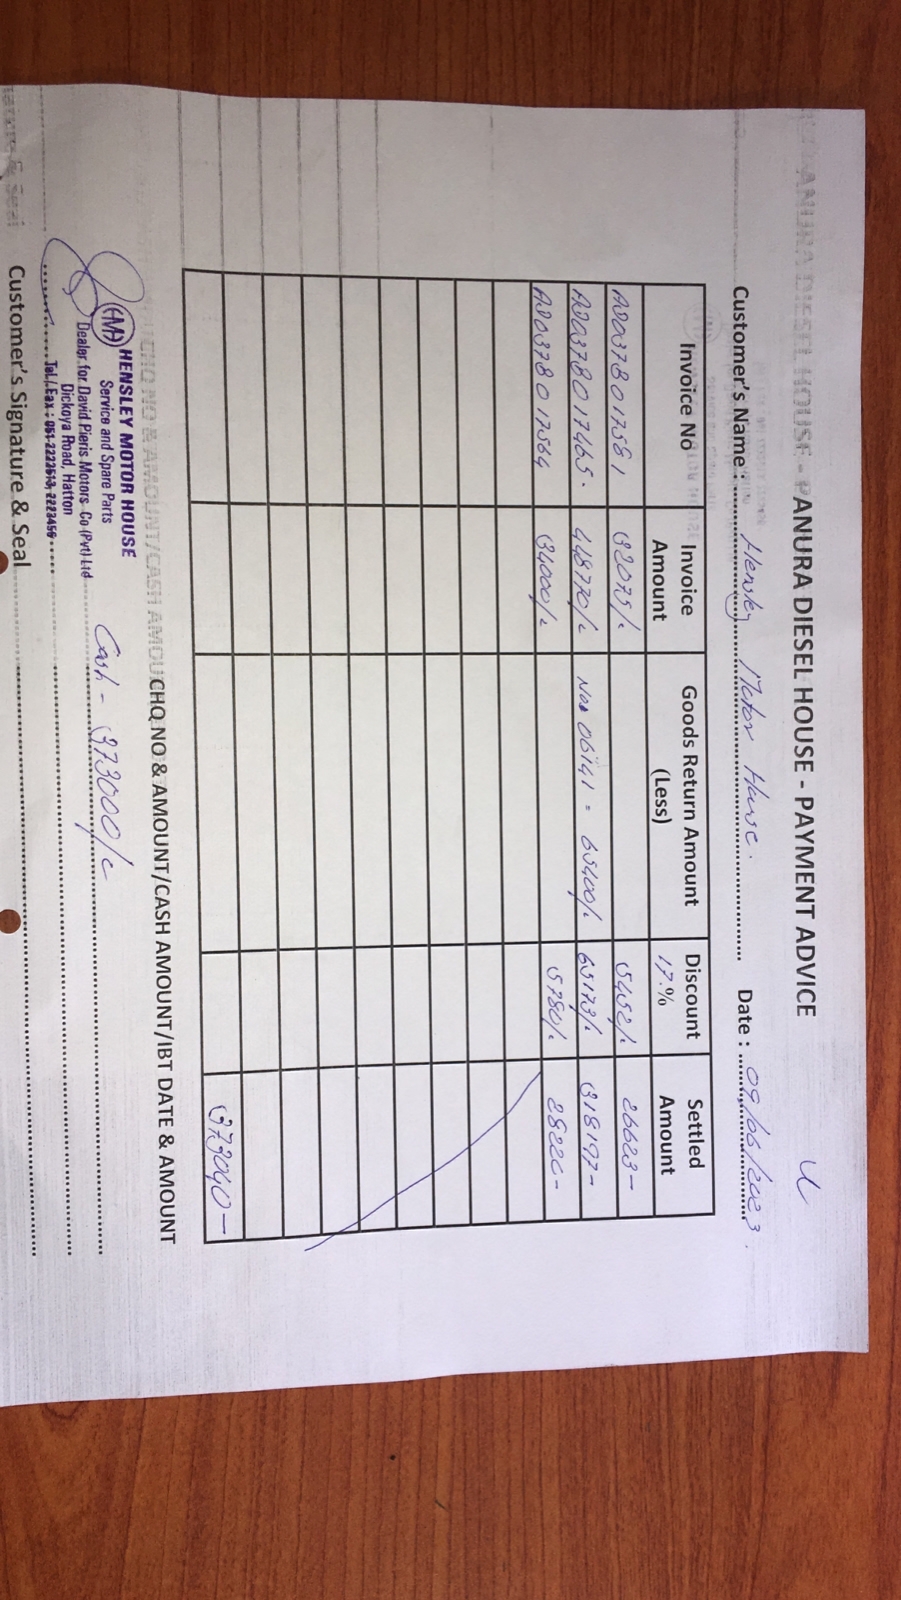 ANURA DIESEL HOUSE - PAYMENT ADVICE
Customer's Name : Hensley Motor House. Date : 09/06/2023.
Invoice No Invoice Amount Goods Return Amount (Less) Discount 17% Settled Amount
AD037B017581 32075/. 5452/. 26623-
AD037B017465. 448770/. No 06141 = 65400/. 65173/. 318197-
AD037B017564 34000/. 5780/. 28220-
373040-
CHQ NO & AMOUNT/CASH AMOUNT/IBT DATE & AMOUNT
Cash - 373000/.
HENSLEY MOTOR HOUSE
Service and Spare Parts
Dealer for David Pieris Motors Co (Pvt) Ltd
Dickoya Road, Hatton
Tel / Fax : 051-2222513, 2223456
Customer's Signature & Seal